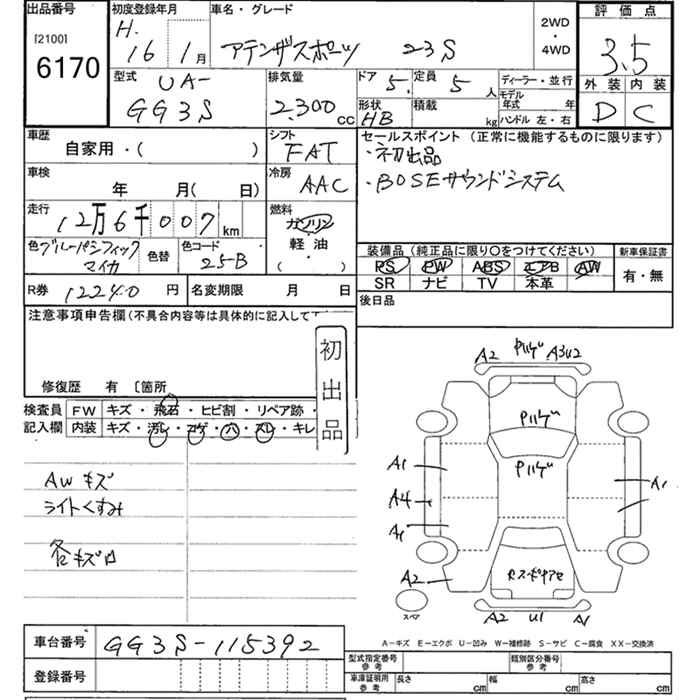 出品番号
[2100]
6170
初度登録年月
H.
16 1月
車名・グレード
アテンザスポーツ 23S
2WD
・
4WD
評価点
3.5
外装 内装
D C
型式
UA-
GG3S
排気量
2.300
cc
ドア
5.
定員
5
人
ディーラー・並行
モデル
年式 年
形状
HB
積載
kg
ハンドル 左・右
車歴
自家用・( )
シフト
FAT
セールスポイント (正常に機能するものに限ります)
・初出品
・BOSEサウンドシステム
車検
年 月(日)
冷房
AAC
走行
12万6千007km
燃料
ガソリン
軽油
( )
色 ブルーパシフィック
マイカ
色替
色コード
25B
装備品 (純正品に限り○をつけてください)
PS PW ABS エアB AW
SR ナビ TV 本革
新車保証書
有・無
R券 12240 円
名変期限 月 日
後日品
注意事項申告欄(不具合内容等は具体的に記入して
初出品
修復歴 有 〔箇所
検査員
記入欄
FW キズ・飛石・ヒビ割・リペア跡・
内装 キズ・汚レ・コゲ・穴・スレ・キレ
AW キズ
ライトくすみ
各キズ凹
A2 タハゲ A3U2
タハゲ
タハゲ
A1
A4
A1
A2
A1
スペア
A2 U1 A1
A−キズ E−エクボ U−凹み W−補修跡 S−サビ C−腐食 XX−交換済
車台番号 GG3S-115392
登録番号
型式指定番号
参考
類別区分番号
参考
車庫証明用
参考
長さ cm 幅 cm 高さ cm